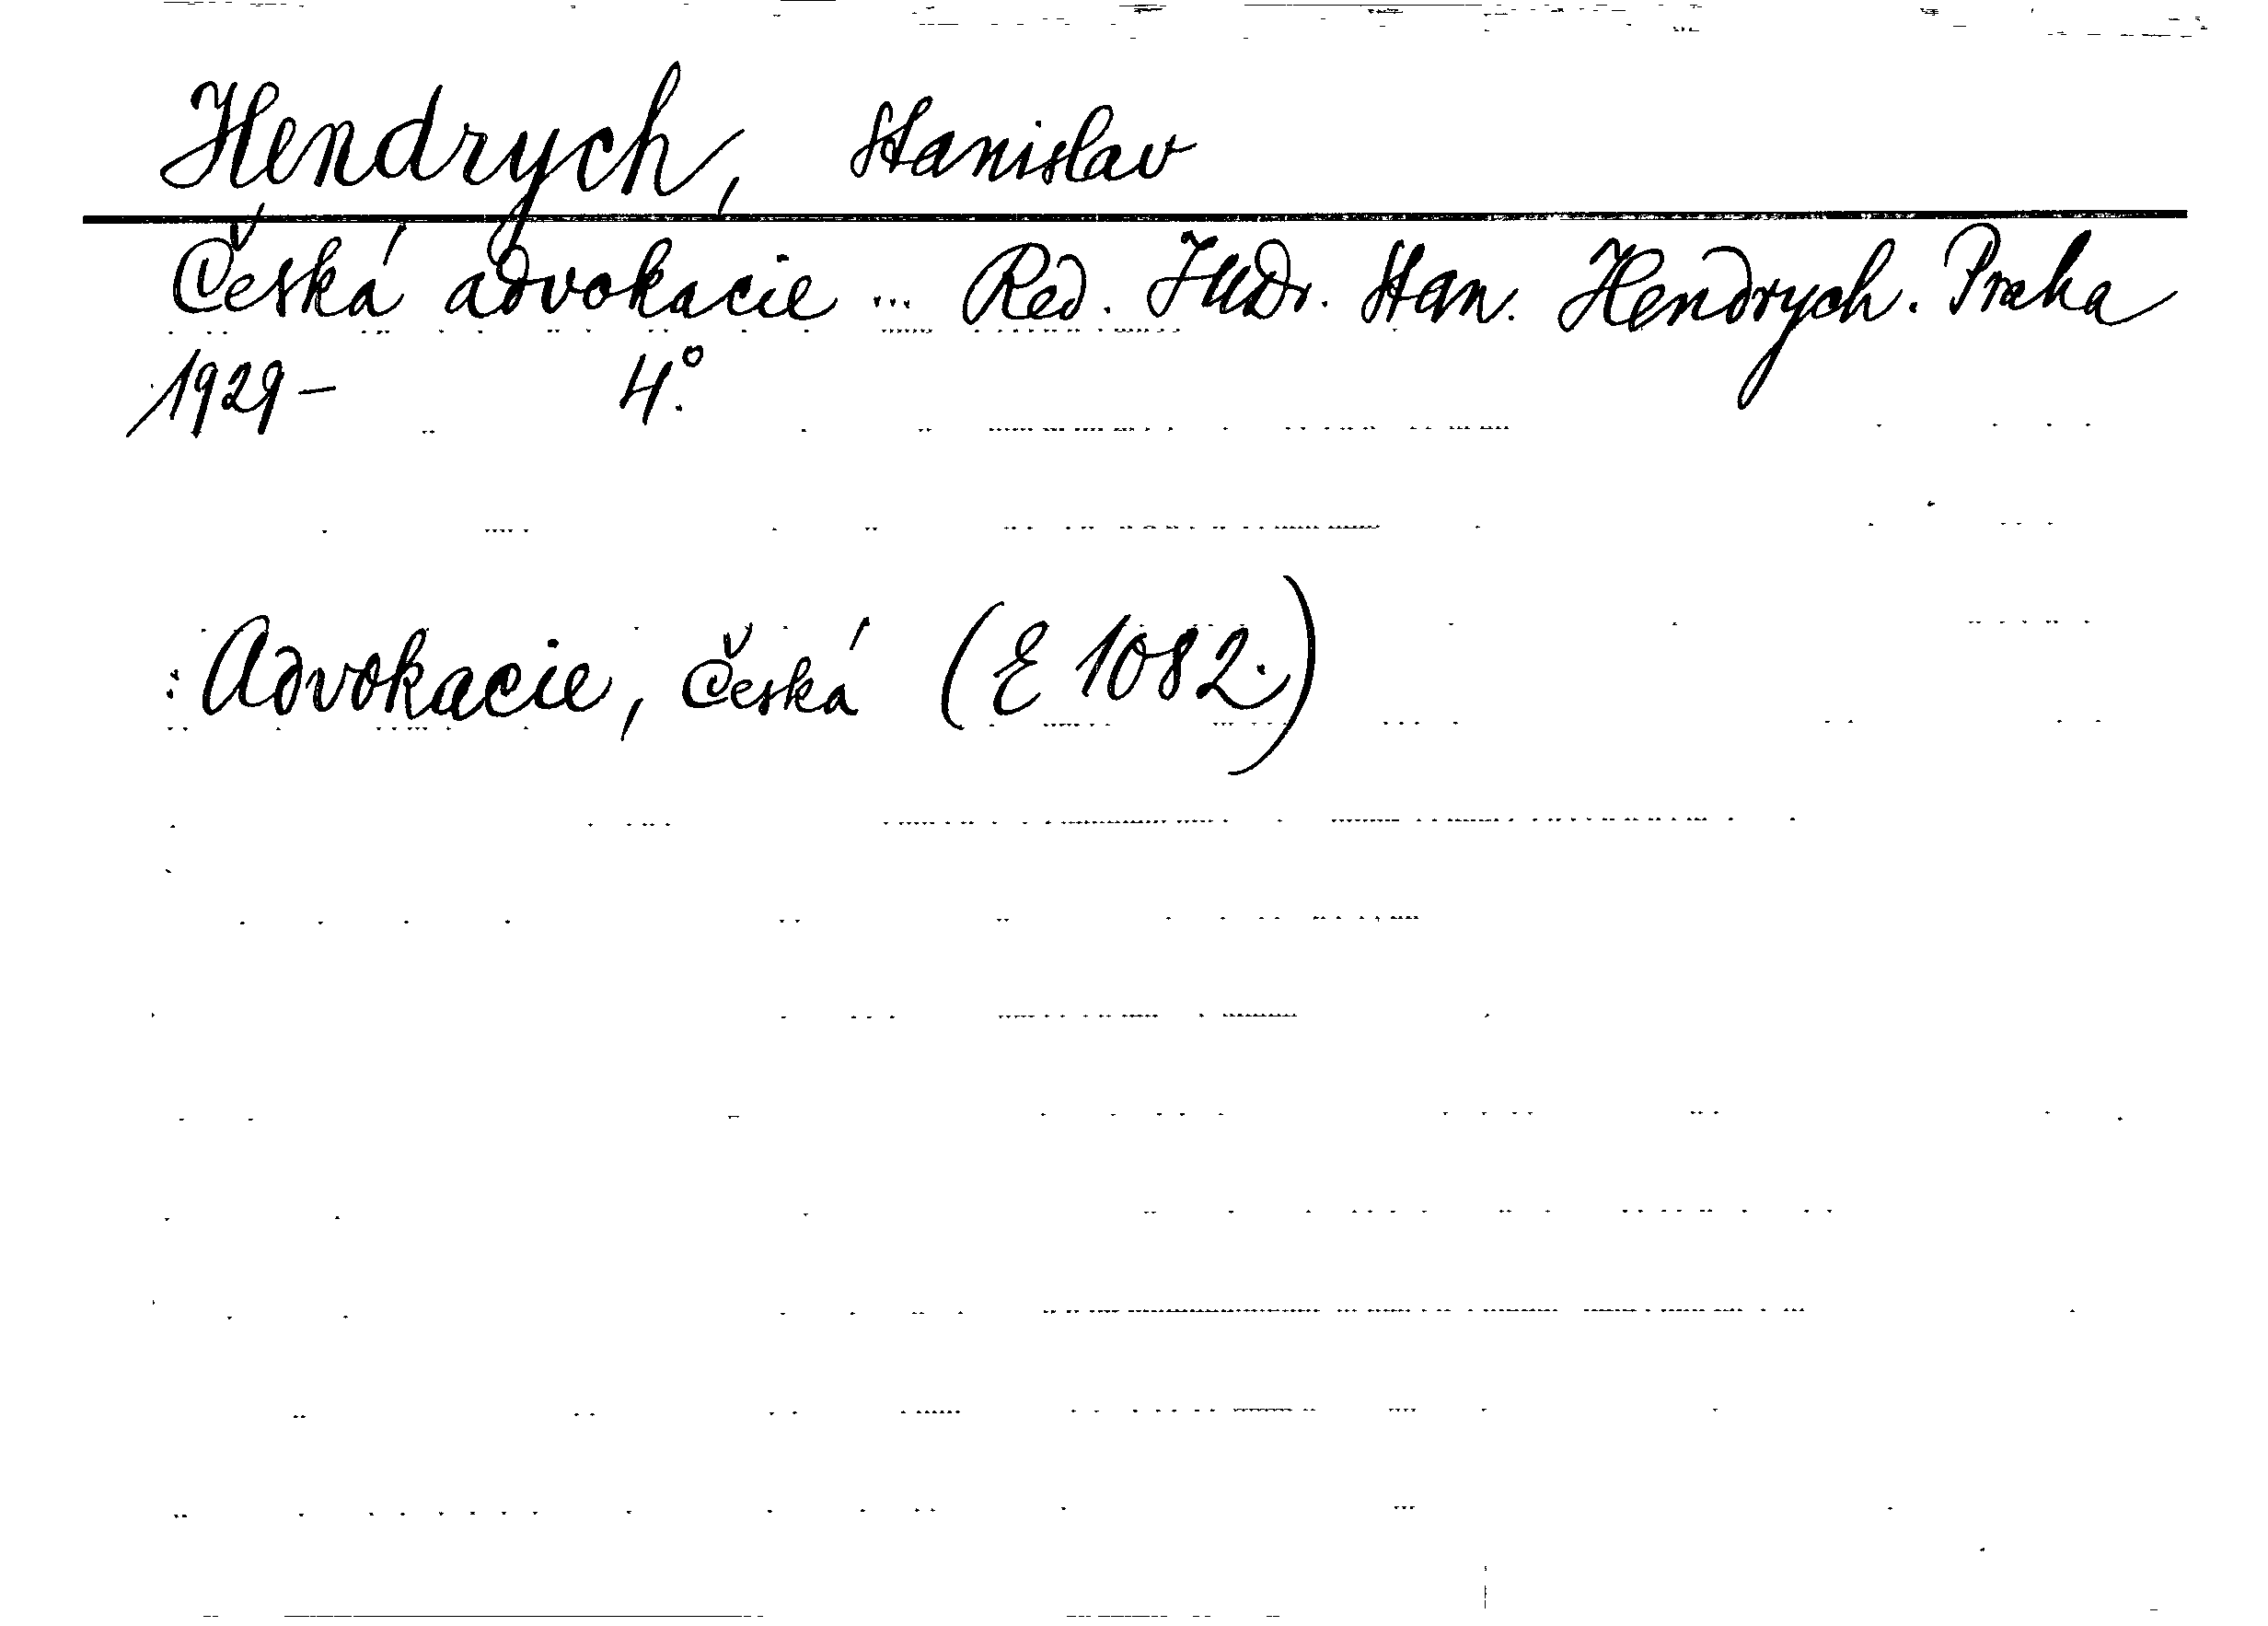 Hendrych, Stanislav
Česká advokacie ... Red. JUDr. Stan. Hendrych. Praha
1929- 4°.
: Advokacie, česká (E 1082.)